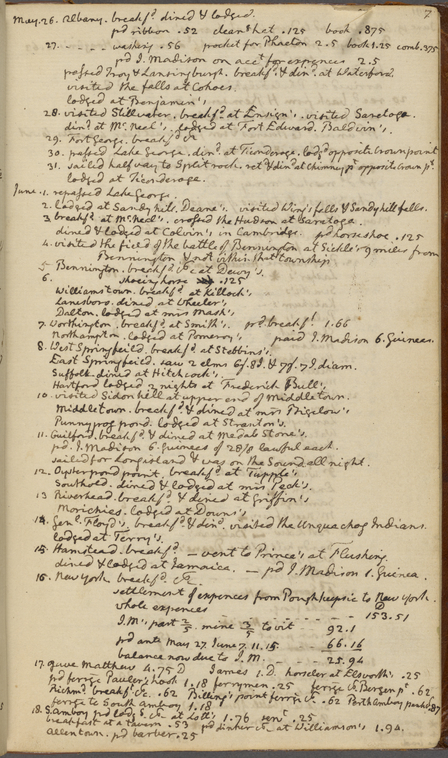 7
May. 26. Albany. breakf.^t dined & lodged.
pd ribbon .52 clean.^g hat .125 book .875
27. - - - - washing .56 pocket for Phaeton 2.5 book 1.25 comb .375
pd J. Madison on acc.^t for expences 2.5
passed Troy & Lansingburgh. breakf.^t & din.^d at Waterford.
visited the falls at Cohoes
lodged at Benjamin's
28. visited Stillwater. breakf.^t at Ensign's. visited Saratoga.
din.^d at M.^c Neel's, lodged at Fort Edward. Baldwin's.
29. Fort George. breakf.^t &c
30. passed Lake George. din.^d at Ticonderoga. lodg.^d opposite Crown point
31. sailed half way to Split rock. ret.^d & din.^d at chimney p.^t opposite Crown p.^t
lodged at Ticonderoga.
June. 1. repassed Lake George.
2. lodged at Sandy hill, Deane's. visited Wing's falls & Sandy hill falls.
3. breakf.^t at M.^c Neel's. crossed the Hudson at Saratoga.
dined & lodged at Colvin's in Cambridge. pd horseshoe .125
4. visited the field of the battle of Bennington at Sickle's 9 miles from
Bennington & not within that township
5 Bennington. breakf.^t &c at Dewy's.
6. shoeing horse .125
Williamstown. breakf.^t at Killoch's.
Lanesboro. dined at Wheeler's
Dalton. lodged at mrs Mash's.
7. Worthington. breakf.^t at Smith's. pd breakf.^t 1.66
Northampton. lodged at Pomeroy's paid J. Madison 6. Guineas.
8. West Springfield. breakf.^t at Stebbins's.
East Springfield. saw 2 elms 6 f. 8 I. & 7 f. 7 I. diam.
Suffolk. dined at Hitchcock's.
Hartford lodged 2 nights at Frederick Bull's.
10. visited Sidon hill at upper end of Middletown.
Middletown. breakf.^t & dined at mrs Bigelow's
Punnyprog pond. lodged at Stranton's.
11. Guilford. breakf.^t & dined at Medab Stone's.
pd. J. Madison 6. guineas of 28/0 lawful each.
sailed for Long island & was on the Sound all night.
12. Oysterpond point. breakf.^t at Tupple's
Southold. dined & lodged at mrs Peck's.
13 Riverhead. breakf.^t & dined at Griffin's
Morichies. lodged at Downs's
14. Gen.^l Floyd's. breakf.^t & din.^d visited the Unquachog Indians.
lodged at Terry's.
15. Hamstead. breakf.^t — went to Prince's at Flushing.
dined & lodged at Jamaica. — pd J. Madison 1. Guinea.
16. New York breakf.^t &c
settlement of expences from Poughkeepsie to New York.
whole expences - - - - - 153.51
J. M.'s part 2/5 mine 3/5 to wit 92.1
pd ante May 27. June 7. 11. 15 - - - 66.16
balance now due to J. M. - - - 25.94
17. gave Matthew 4.75 D James 1. D. hostler at Elsworth's .25
pd ferrge Paulus's hook 1.18 ferrymen .25 ferrge Bergen p.^t .62
Richm.^d breakf.^t &c. .62 Billing's point ferrge &c .62 Perth Amboy punch .87
ferrge to South Amboy 1.18
18. S. Amboy pd lodg.^g &c at Lott's 1.76 serv.^t .25
breakfast at a tavern .53 pd dinner &c at Williamson's 1.94
Allentown. pd barber .25